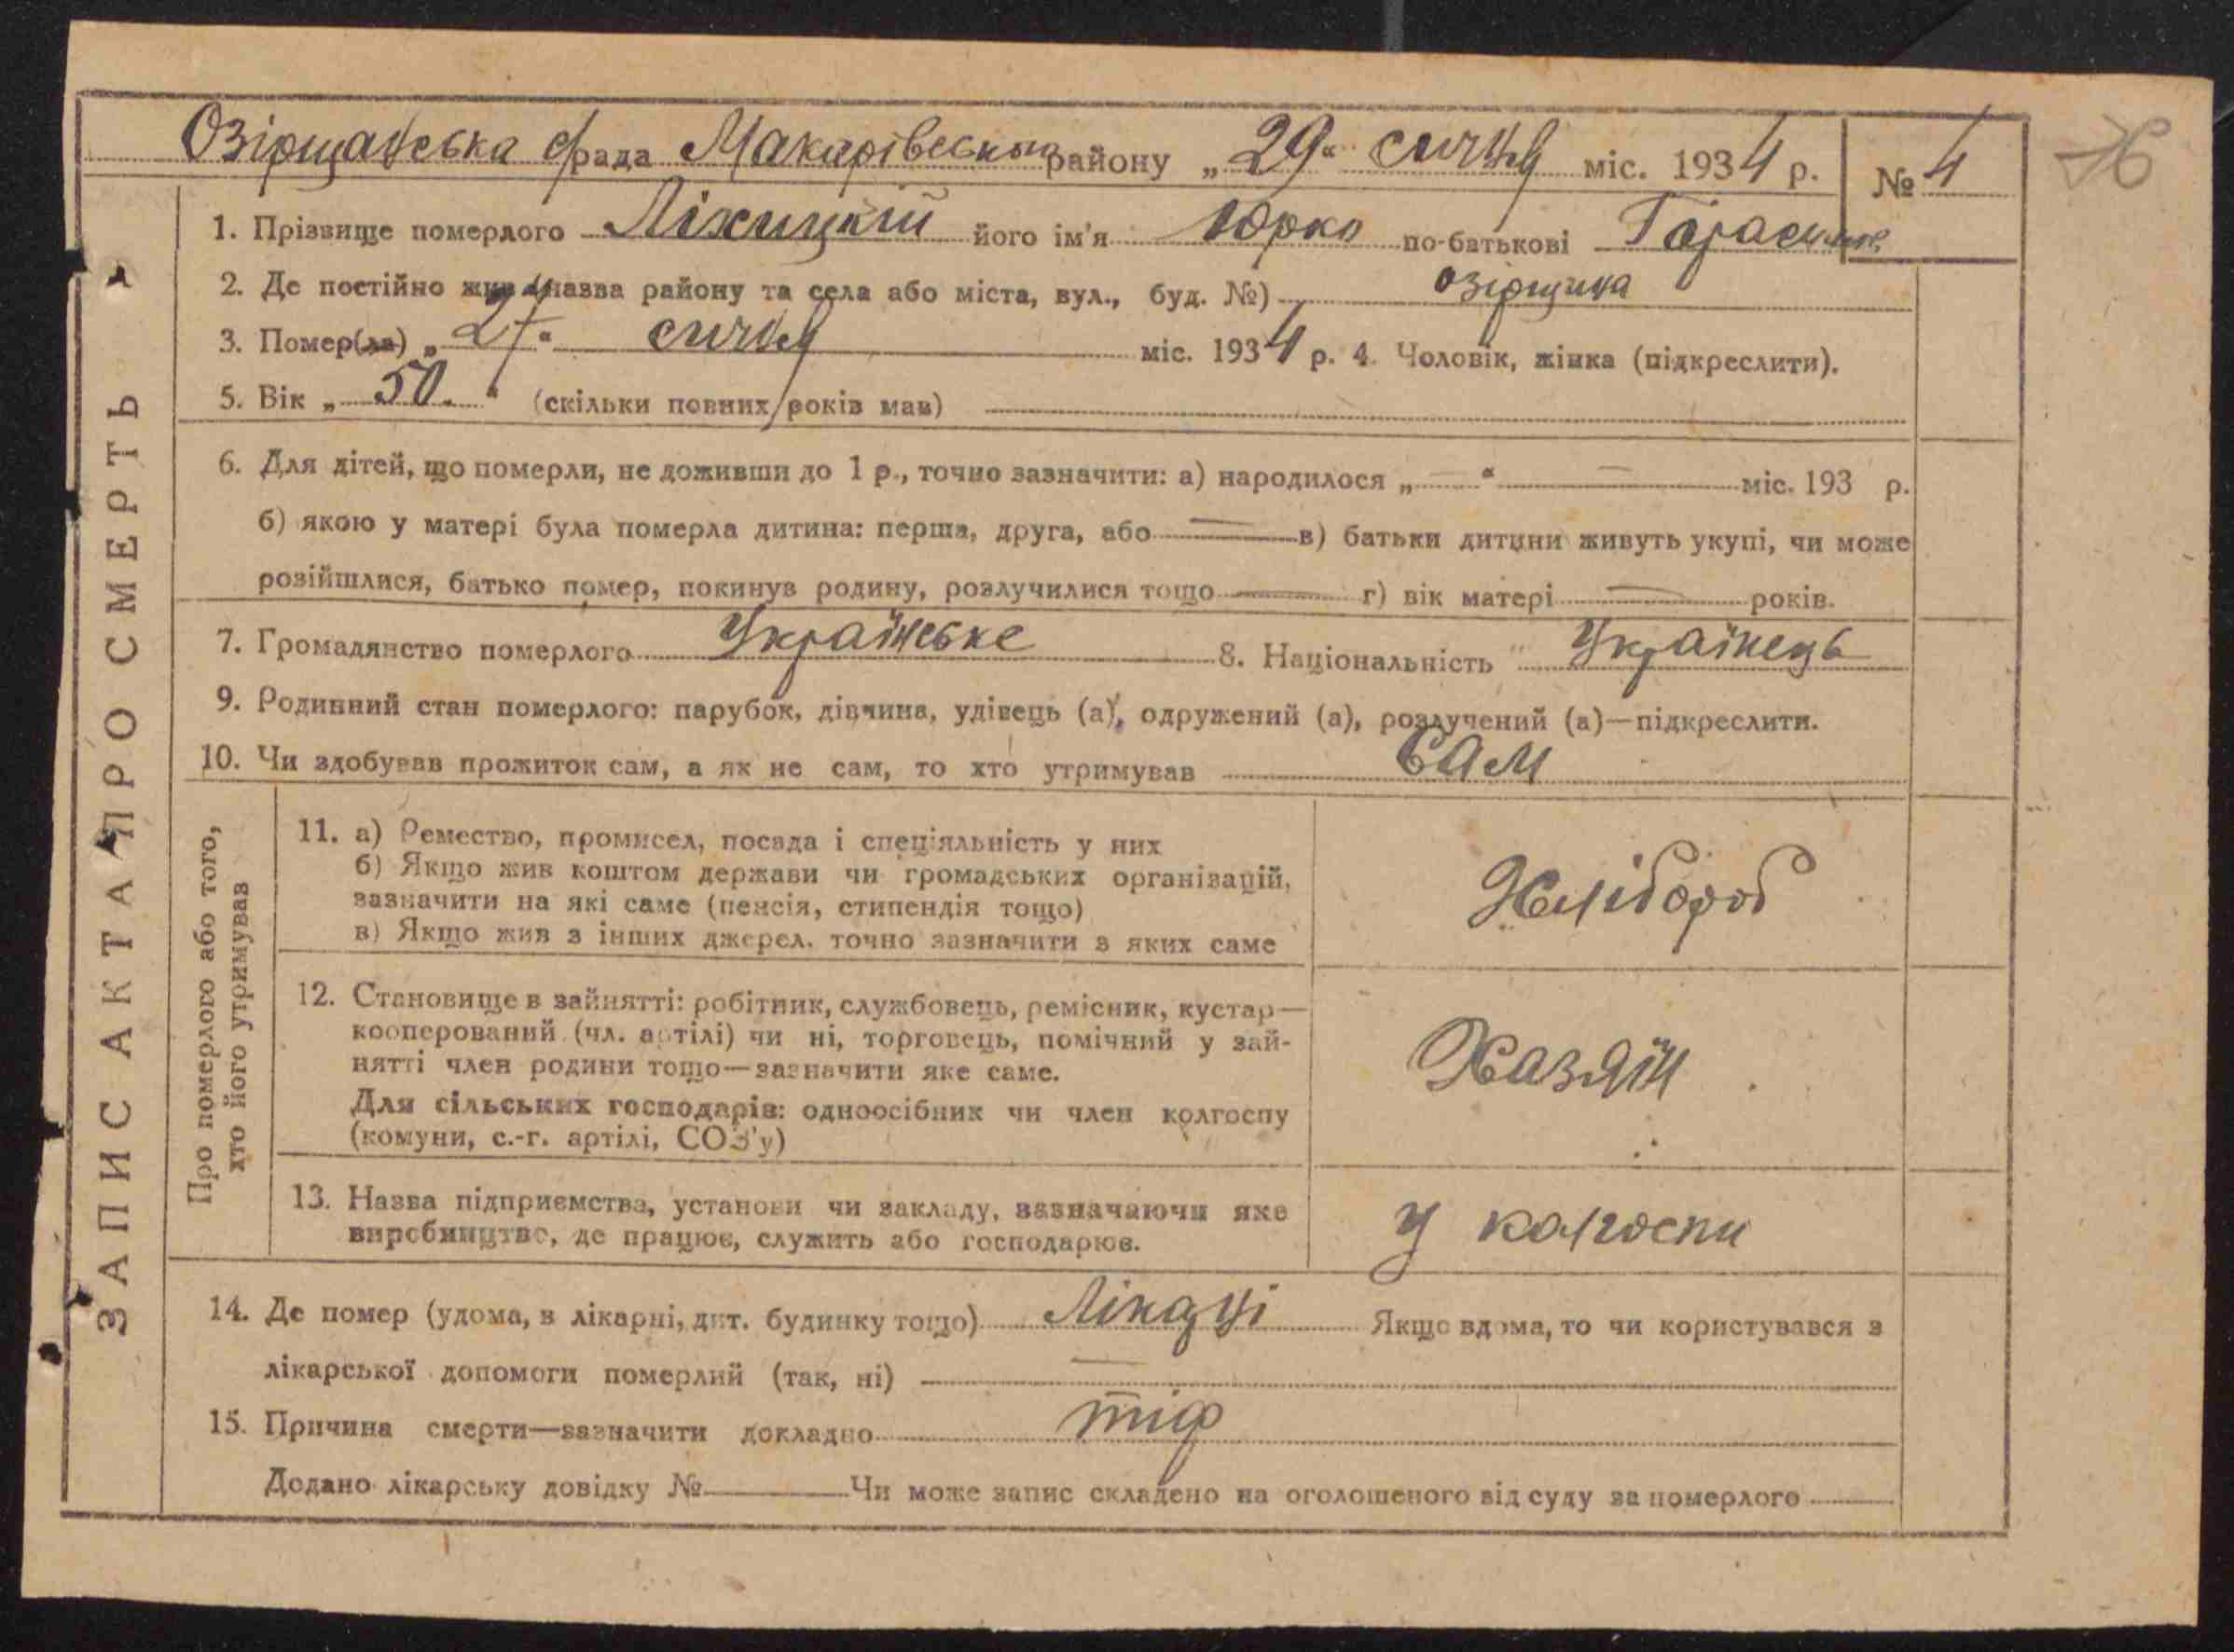 Озірщанська с/рада Макарівського району „29“ січня міс. 1934 р. № 4
76
1. Прізвище померлого Ліхицкій його ім'я Юрко по-батькові Гарасимов.
2. Де постійно жив (назва району та села або міста, вул., буд. №) Озірщина
3. Помер(ла) „27“ січня міс. 1934 р. 4. Чоловік, жінка (підкреслити).
5. Вік „50.“ (скільки повних років мав)
6. Для дітей, що померли, не доживши до 1 р., точно зазначити: а) народилося „—“ — міс. 193 р.
б) якою у матері була померла дитина: перша, друга, або — в) батьки дитини живуть укупі, чи може
розійшлися, батько помер, покинув родину, розлучилися тощо — г) вік матері — років.
7. Громадянство померлого Українське 8. Національність Українець
9. Родинний стан померлого: парубок, дівчина, удівець (а), одружений (а), розлучений (а)—підкреслити.
10. Чи здобував прожиток сам, а як не сам, то хто утримував САМ
ЗАПИС АКТА ПРО СМЕРТЬ
Про померлого або того,
хто його утримував
11. а) Ремество, промисел, посада і спеціяльність у них
б) Якщо жив коштом держави чи громадських організацій,
зазначити на які саме (пенсія, стипендія тощо)
в) Якщо жив з інших джерел, точно зазначити з яких саме
Хлібороб
12. Становище в зайнятті: робітник, службовець, ремісник, кустар—
кооперований (чл. артілі) чи ні, торговець, помічний у зай-
нятті член родини тощо—зазначити яке саме.
Для сільських господарів: одноосібник чи член колгоспу
(комуни, с.-г. артілі, СОЗ'у)
Хазяїн
13. Назва підприємства, установи чи закладу, зазначаючи яке
виробництво, де працює, служить або господарює.
У колгоспи
14. Де помер (удома, в лікарні, дит. будинку тощо) Якщо вдома, то чи користувався з
лікарської допомоги померлий (так, ні) —
15. Причина смерти—зазначити докладно тіф
Додано лікарську довідку № — Чи може запис складено на оголошеного від суду за померлого —